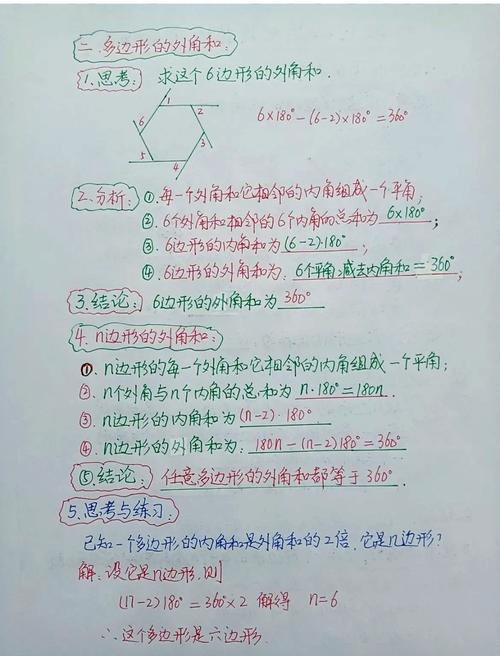 二.多边形的外角和:
1.思考: 求这个6边形的外角和.
1 2 3 4 5 6
6×180°-(6-2)×180°=360°
2.分析: ①.每一个外角和它相邻的内角组成一个平角;
②.6个外角和相邻的6个内角的总和为 6×180° ;
③.6边形的内角和为(6-2)·180° ;
④.6边形的外角和为: 6个平角减去内角和=360° ;
3.结论: 6边形的外角和为 360°
4.n边形的外角和:
①.n边形的每一个外角和它相邻的内角组成一个平角;
②.n个外角与n个内角的总和为 n·180°=180n .
③.n边形的内角和为(n-2)·180°
④.n边形的外角和为: 180n-(n-2)180°=360°
⑤.结论: 任意多边形的外角和都等于360° .
5.思考与练习:
已知一个多边形的内角和是外角和的2倍,它是几边形?
解:设它是n边形,则
(n-2)180°=360°×2 解得 n=6
∴这个多边形是六边形.